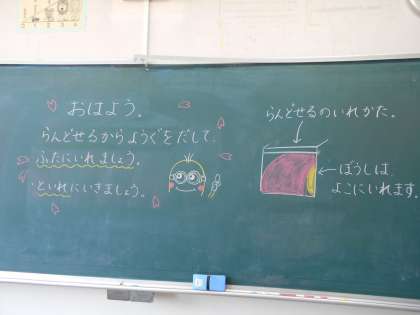 おはよう。
らんどせるからようぐをだして、
ふたにいれましょう。
といれにいきましょう。
らんどせるのいれかた。
ぼうしは、
よこにいれます。